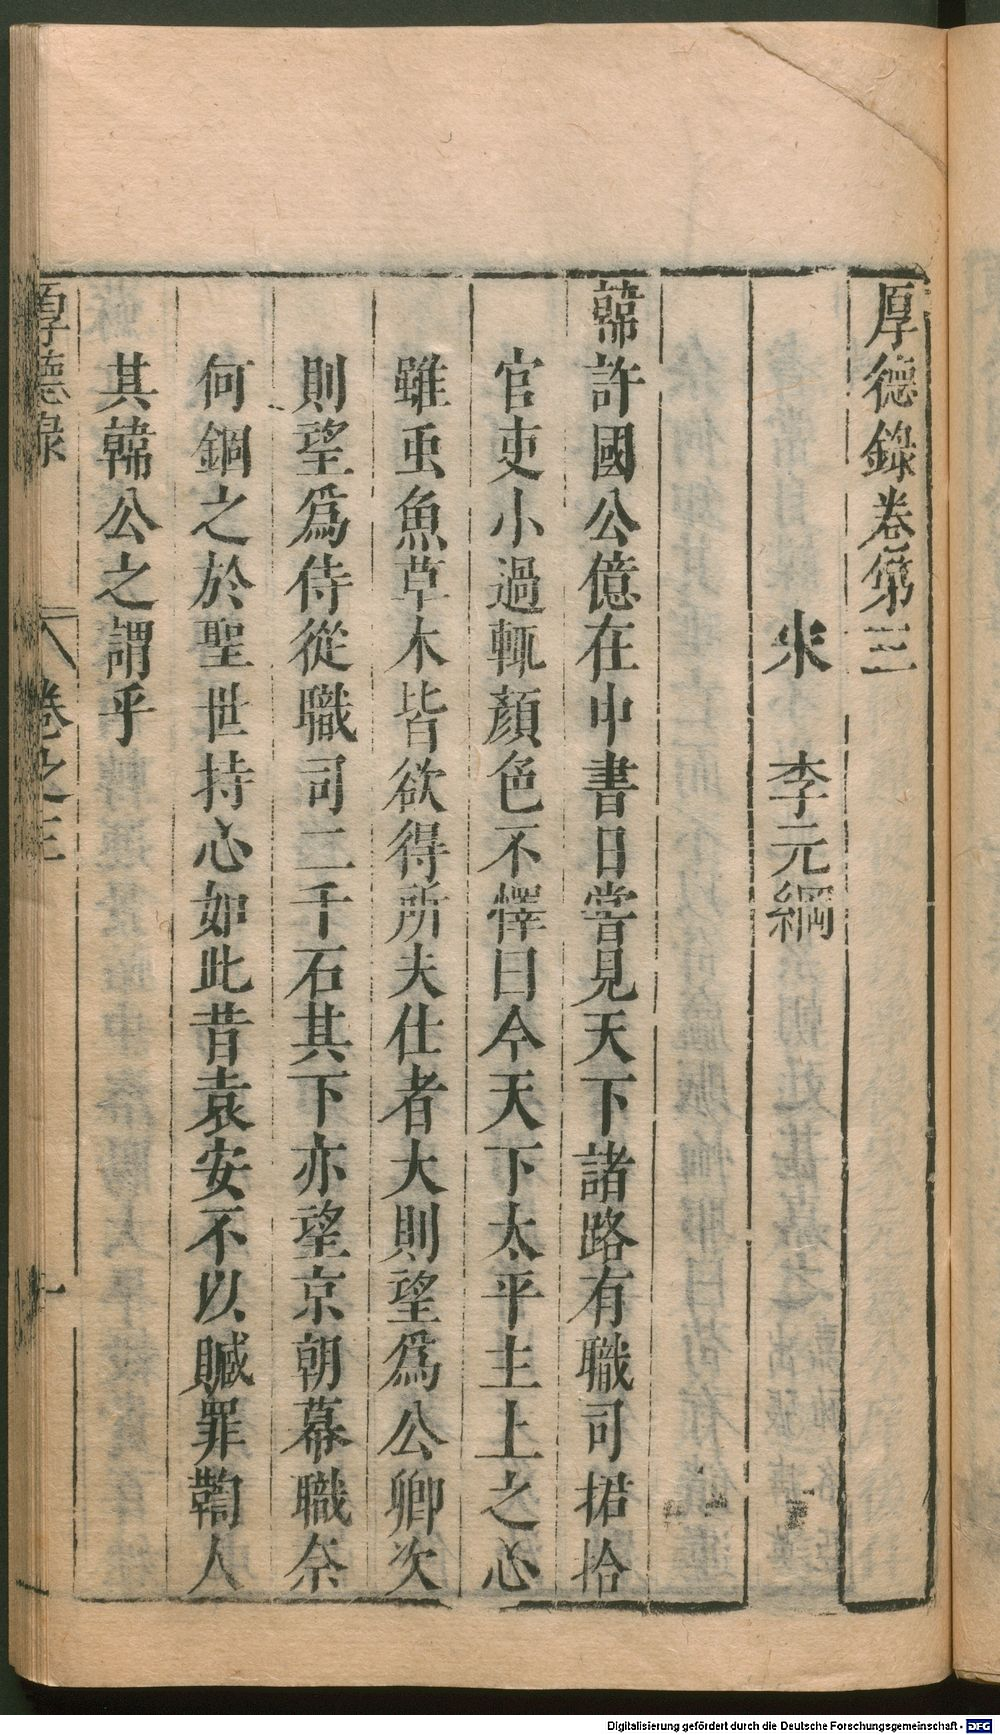 厚德錄卷第三
宋 李元綱
韓許國公億在中書日嘗見天下諸路有職司捃拾
官吏小過輒顏色不懌曰今天下太平主上之心
雖䖝魚草木皆欲得所夫仕者大則望爲公卿次
則望爲侍從職司二千石其下亦望京朝幕職奈
何錮之於聖世持心如此昔袁安不以贓罪鞫人
其韓公之謂乎
厚德錄 卷之三 一
Digitalisierung gefördert durch die Deutsche Forschungsgemeinschaft - DFG